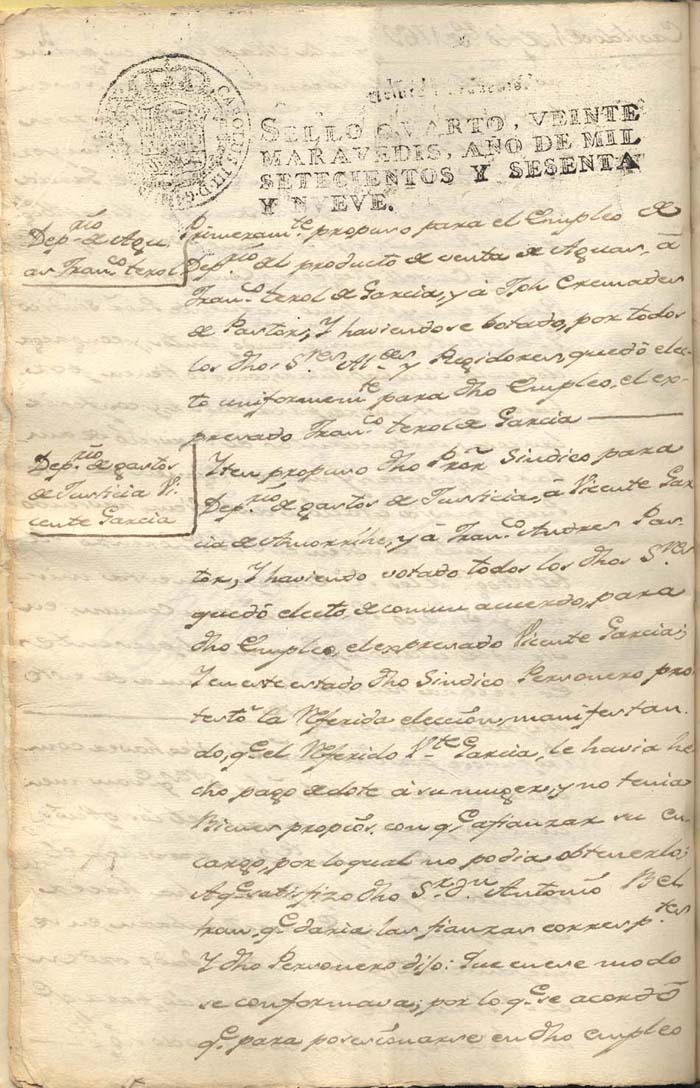 CAROLUS III D G
SELLO QVARTO, VEINTE
MARAVEDIS, AÑO DE MIL
SETECIENTOS Y SESENTA
Y NVEVE.
Dep.rio de Agu
as Fran.co terol
Primeram.te propuso para el Empleo de
Dep.rio del producto de venta de Aguas, â
Fran.co terol de Garcia, y â Jph Cremades
de Pastor, Y haviendose botado, por todos
los dhos S.res Al.des y Regidores, quedó elec-
to uniformem.te para dho Empleo, el ex-
presado Fran.co terol de Garcia
Dep.rio de gastos
de Justicia Vi
cente Garcia
Yten propuso dho Pror Sindico para
Dep.rio de gastos de Justicia, â Vicente Gar
cia de, y â Fran.co Andres Pas-
tor, Y haviendo votado todos los dhos S.res
quedó electo de comun acuerdo, para
dho Empleo, el expresado Vicente Garcia;
Y en este estado dho Sindico Personero pro
testó la Referida eleccion, manifestan-
do, q.e el Referido V.te Garcia, le havia he
cho pago de dote â su muger, y no tenia
Bienes propios con q.e afianzar su en
cargo, por lo qual no podia obtenerlo;
A q.e satisfizo dho S.r d.n Antonio Bel
tran q.e daria las fianzas corresp.tes
Y dho Personero dijo: Que en ese modo
se conformava; por lo q.e se acordó
q.e para posesionarse en dho empleo